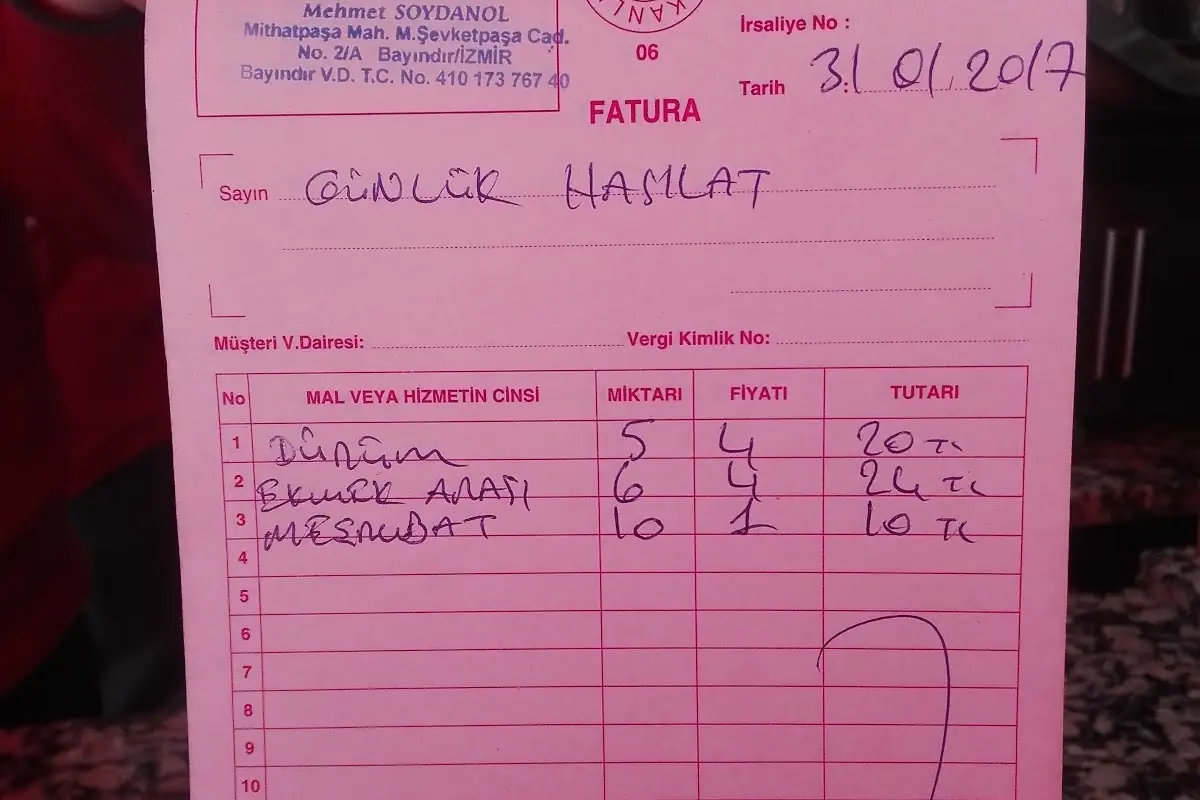 Mehmet SOYDANOL
Mithatpaşa Mah. M.Şevketpaşa Cad.
No. 2/A Bayındır/İZMİR
Bayındır V.D. T.C. No. 410 173 767 40
KANL
06
FATURA
İrsaliye No :
Tarih 31.01.2017
Sayın GÜNLÜK HASILAT
Müşteri V.Dairesi: Vergi Kimlik No:
No MAL VEYA HİZMETİN CİNSİ MİKTARI FİYATI TUTARI
1 DÜRÜM 5 4 20 TL
2 EKMEK ARASI 6 4 24 TL
3 MEŞRUBAT 10 1 10 TL
4
5
6
7
8
9
10